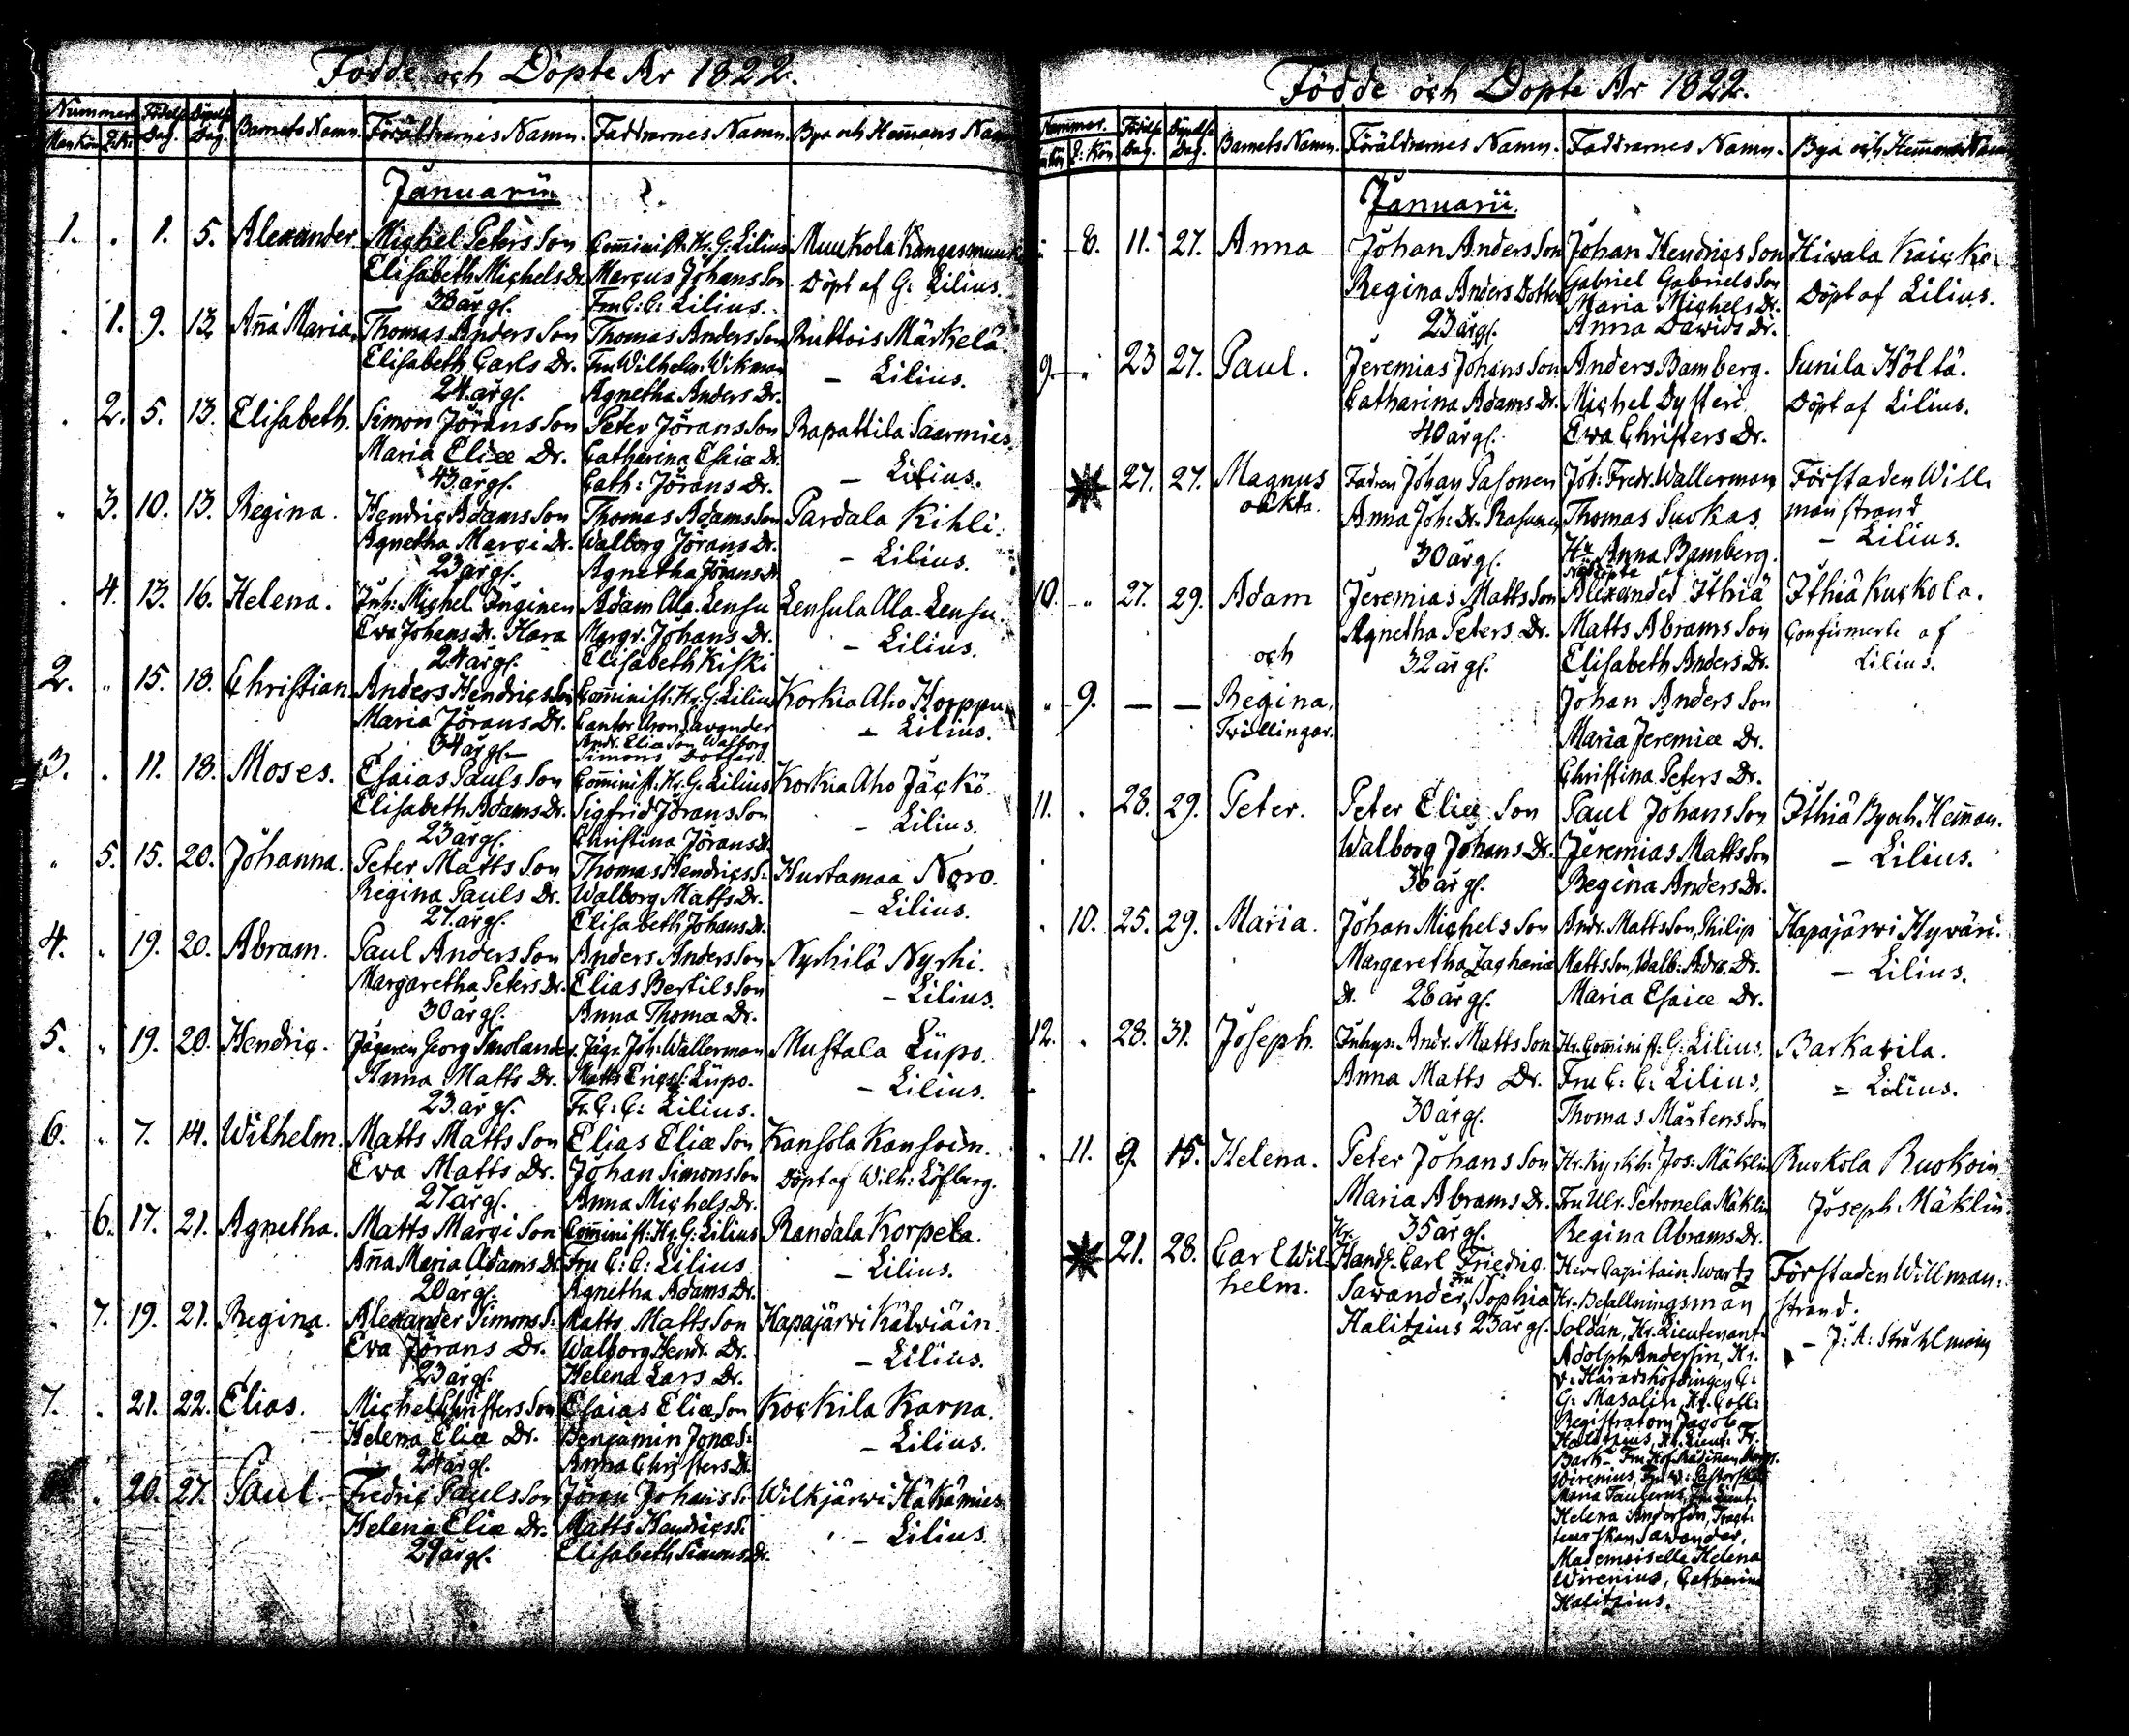 Födde och Döpte År 1822.
Nummer Födelse Döpelse Barnets Namn. Föräldrarnes Namn. Faddrarnes Namn. Bya och Hemans Namn
Man Kön Q: K: Dag. Dag.
Januarii
1. 1. 5. Alexander. Michel Peters Son Comminist. Hr. G. Lilius Muukola Kangasmuuk
Elisabeth Michels Dr. Marcus Johans Son Döpt af G: Lilius.
38 år gl. Fru C: C: Lilius.
1. 9. 13. Aña Maria. Thomas Anders Son Thomas Anders Son Ruttois Märkelä.
Elisabeth Carls Dr. Fru Wilhelm. Wikman – Lilius.
24 år gl. Agnetha Anders Dr.
2. 5. 13. Elisabeth. Simon Jörans Son Peter Jörans Son Rapattila Saarmies
Maria Eliæ Dr. Catharina Esaiæ Dr. – Lilius.
43 år gl. Cath: Jörans Dr.
3. 10. 13. Regina. Hendric Adams Son Thomas Adams Son Pardala Kihli.
Agnetha Marci Dr. Walborg Jörans Dr. – Lilius.
23 år gl. Agnetha Jörans Dr.
4. 13. 16. Helena. Inh: Michel Inginen Adam Ala-Lensu Lensula Ala-Lensu.
Eva Johans Dr. Hara Margr. Johans Dr. – Lilius.
24 år gl. Elisabeth Kiski
2. 15. 18. Christian Anders Hendrics Son Comminist: Hr. G: Lilius Korkia Aho Horppu
Maria Jörans Dr. Cantor Aron Lavonder – Lilius.
34 år gl. Andr. Eliæ Son Walborg
Simons Dotter.
3. 11. 18. Moses. Esaias Pauls Son Comminist. Hr. G: Lilius Korkia Aho Jäckö.
Elisabeth Adams Dr. Sigfrid Jörans Son – Lilius.
23 år gl. Christina Jörans Dr.
5. 15. 20. Johanna. Peter Matts Son Thomas Hendrics S: Hurtamaa Noro.
Regina Pauls Dr. Walborg Matts Dr. – Lilius.
27 år gl. Elisabeth Johans Dr.
4. 19. 20. Abram. Paul Anders Son Anders Anders Son Nyrhilä Nyrhi.
Margaretha Peters Dr. Elias Bertils Son – Lilius.
30 år gl. Anna Thomæ Dr.
5. 19. 20. Hendric. Jägaren Georg Smolander. Jägr. Joh: Wallerman Mustala Lüpo.
Anna Matts Dr. Matts Erics S: Lüpo. – Lilius.
23 år gl. Fr. C: C: Lilius.
6. 7. 14. Wilhelm. Matts Matts Son Elias Eliæ Son Kansola Kansoin.
Eva Matts Dr. Johan Simons Son Döpt af Wilh: Löfberg.
27 år gl. Anna Michels Dr.
6. 17. 21. Agnetha. Matts Marci Son Comminist: Hr. G: Lilius Randala Korpela.
Aña Maria Adams Dr. Fru C: C: Lilius – Lilius.
20 år gl. Agnetha Adams Dr.
7. 19. 21. Regina. Alexander Simons S: Matts Matts Son Hapajärvi Kälviäin.
Eva Jörans Dr. Walborg Hendr. Dr. – Lilius.
23 år gl. Helena Lars Dr.
7. 21. 22. Elias. Michel Christers Son Esaias Eliæ Son Kockila Karpa.
Helena Eliæ Dr. Benjamin Jonæ S: – Lilius.
24 år gl. Anna Christers Dr.
20. 27. Paul. Fredric Pauls Son Jöran Johans S: Wilkjärvi Häkämies
Helena Eliæ Dr. Matts Hendrics S: – Lilius.
29 år gl. Elisabeth Simons Dr.
Födde och Döpte År 1822.
Nummer. Födelse Döpelse Barnets Namn. Föräldrarnes Namn. Faddrarnes Namn. Bya och Hemans Namn
Q: Kön Dag. Dag.
Januarii.
8. 11. 27. Anna Johan Anders Son Johan Hendrics Son Hiwala Kaicko.
Regina Anders Dotter Gabriel Gabriels Son Döpt af Lilius.
23 år gl. Maria Michels Dr.
Anna Dawids Dr.
9. 23 27. Paul. Jeremias Johans Son Anders Bamberg. Sunila Hölttä.
Catharina Adams Dr. Michel Dysteri Döpt af Lilius.
40 år gl. Ewa Christers Dr.
27. 27. Magnus Fadren Johan Pasonen Joh: Fredr. Wallerman Förstaden Will
oäkta. Anna Joh: Dr. Rasunen Thomas Surkas manstrand
30 år gl. Hu Anna Bamberg. – Lilius.
Nöddöpte
10. 27. 29. Adam Jeremias Matts Son Alexander Ithiä Ithiä Kuckola.
Agnetha Peters Dr. Matts Abrams Son Confirmerte af
och 32 år gl. Elisabeth Anders Dr. Lilius.
9. — — Regina, Johan Anders Son
Tvillingar. Maria Jeremiæ Dr.
Christina Peters Dr.
11. 28. 29. Peter. Peter Eliæ Son Paul Johans Son Ithiä By och Heman.
Walborg Johans Dr. Jeremias Matts Son – Lilius.
36 år gl. Regina Anders Dr.
10. 25. 29. Maria. Johan Michels Son Andr. Matts Son, Philip Hapajärwi Hyväri.
Margaretha Zachariæ Matts Son, Walb: Andrs. Dr. – Lilius.
Dr. 28 år gl. Maria Esaiæ Dr.
12. 28. 31. Joseph. Inhys: Andr. Matts Son Hr. Comminist: G: Lilius. Barkarila.
Anna Matts Dr. Fru C: C: Lilius, = Lilius.
30 år gl. Thomas Mårtens Son
11. 9. 15. Helena. Peter Johans Son Hr. Kyrkh: Jos: Mäklin Ruokola Ruokoin
Maria Abrams Dr. Fru Ulr. Petronela Mäklin Joseph Mäklin.
35 år gl. Regina Abrams Dr.
21. 28. Carl Wil- Hr. Handl. Carl Friedric. Herr Capitain Swartz Förstaden Willman:
helm. Sawander, Fru Sophia Hr. Befallningsman strand.
Halitzius 23 år gl. Soldan, Hr. Lieutenant – J: A: Stråhlman
Adolph Andersin, Hr.
v: Häradshöfdingen C:
G: Masalin, Hr. Coll:
Registratorn Jacob
Halitzius, Hr. Lieut: Fr.
Bark – Fru
Wirenius, Fru
Maria
Helena Andersin, Tract:
teurskan Sawander,
Mademoiselle Helena
Wirenius, Catharina
Halitzius.